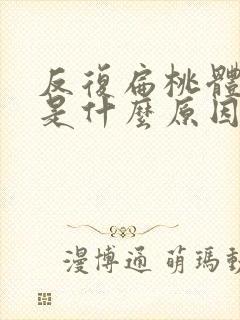 反復扁桃體
是什麼原因
漫博通 萌瑪動